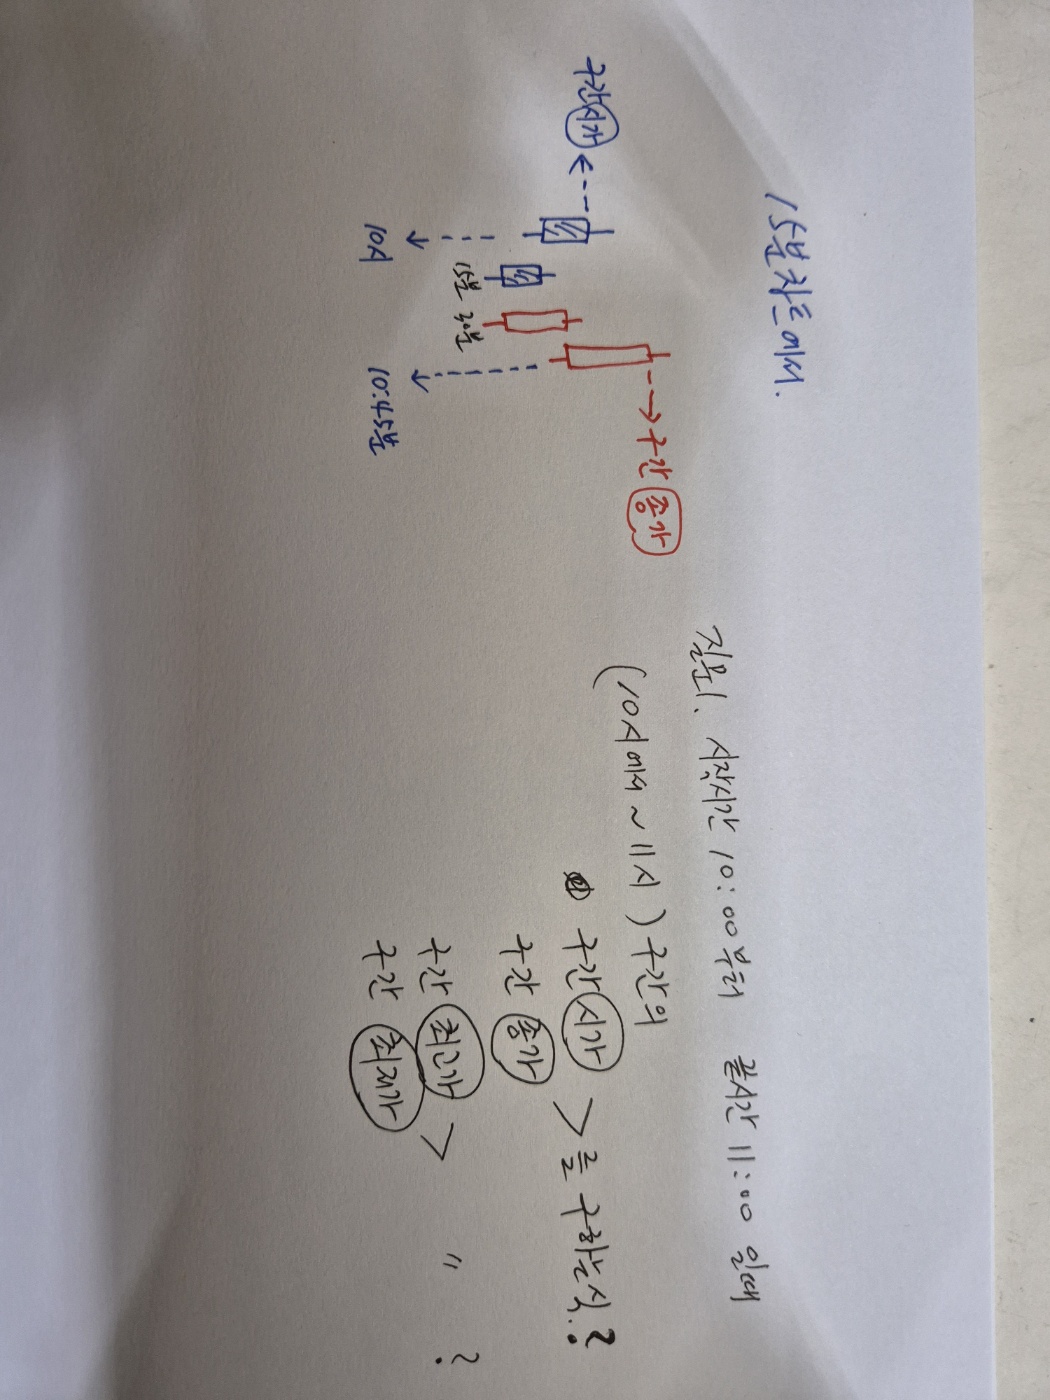 15분차트에서.
구간시가
구간종가
10시
15분
30분
10:45분
질문1. 시작시간 10:00부터 끝시간 11:00 일때
(10시에서 ~ 11시) 구간의
구간시가
구간 종가
>를 구하는식.?
구간 최고가
구간 최저가
> " ?